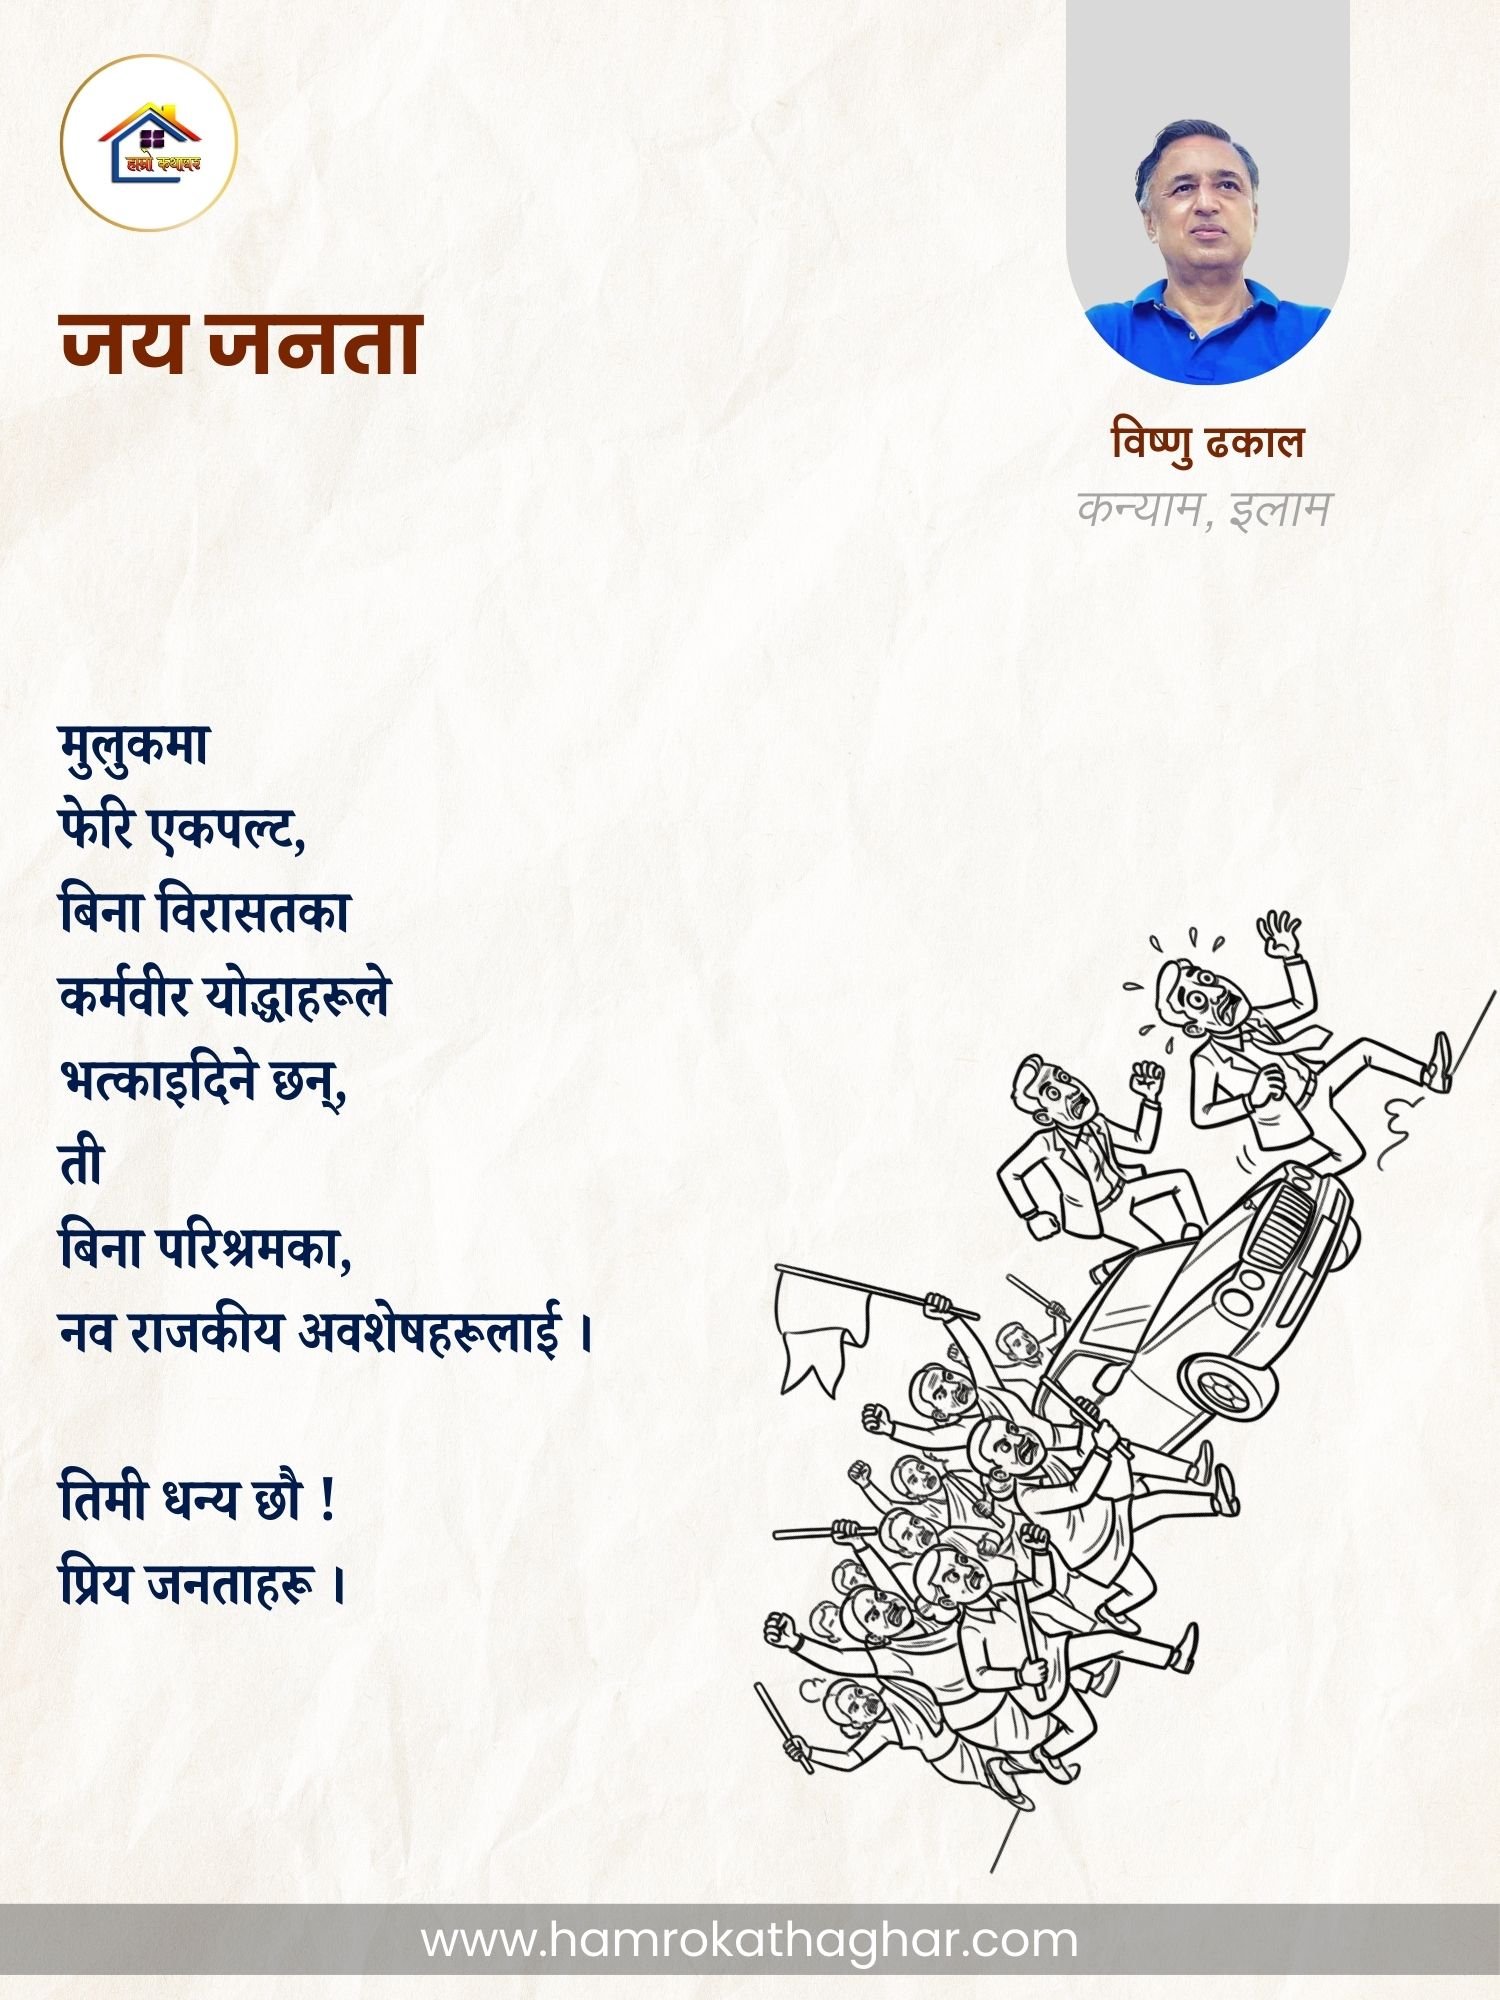 हाम्रो कथाघर
जय जनता
विष्णु ढकाल
कन्याम, इलाम
मुलुकमा
फेरि एकपल्ट,
बिना विरासतका
कर्मवीर योद्धाहरूले
भत्काइदिने छन्,
ती
बिना परिश्रमका,
नव राजकीय अवशेषहरूलाई ।
तिमी धन्य छौ !
प्रिय जनताहरू ।
www.hamrokathaghar.com